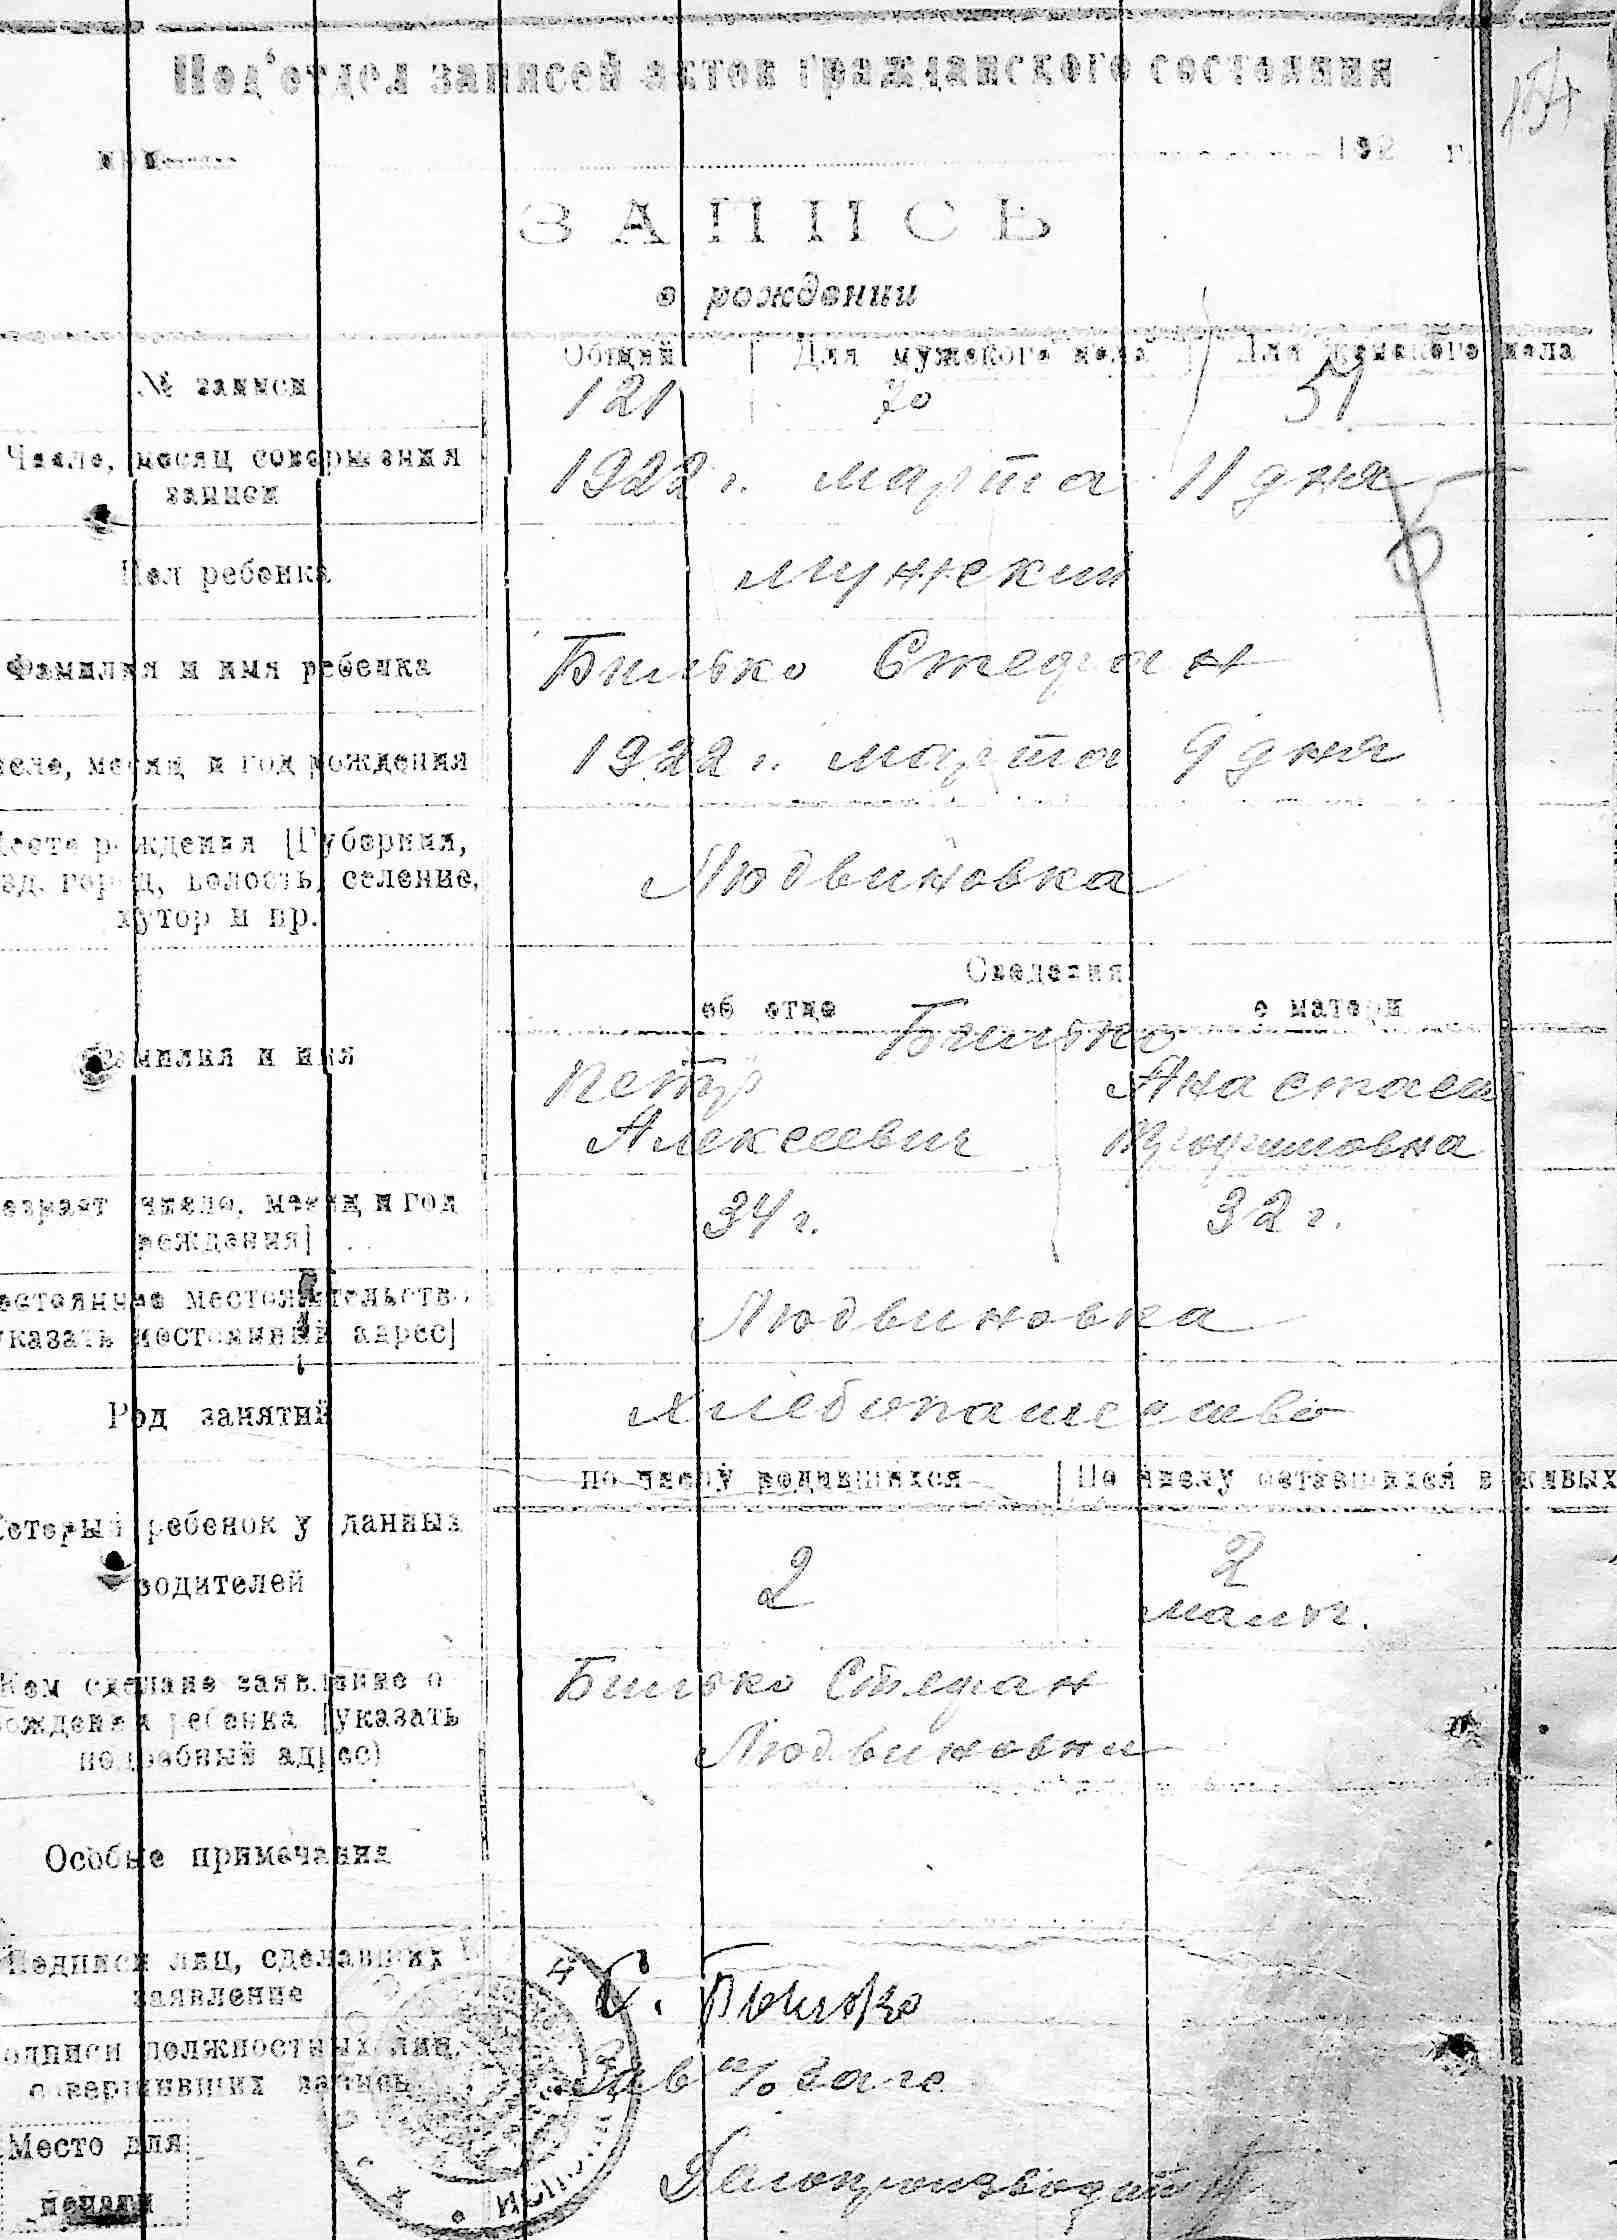 Под'отдел записей актов гражданского состояния
при 192 г.
ЗАПИСЬ
о рождении
Общий Для мужского пола Для женского пола
№ записи 121 70 51
Число, месяц совершения записи 1922 г. марта 11 дня
Пол ребенка мужский
Фамилия и имя ребенка Билько Стефан
число, месяц и год рождения 1922 г. марта 9 дня
Место рождения [Губерния,
уезд, город, волость, селение, Людвиновка
хутор и пр.
Сведения
об отце о матери
Билько
Фамилия и имя Петр Анастасия
Алексеевич
Возраст число, месяц и год рождения] 34 г. 32 г.
Постоянное местожительство
указать постоянный адрес] Людвиновка
Род занятий хлебопашество
по числу родившихся По числу оставшихся в живых
Который ребенок у данных
родителей 2 2
мальч.
Кем сделано заявление о Билько Стефан
рождении ребенка [указать
подробный адрес) Людвиновки
Особые примечания
Подписи лиц, сделавших
заявление С. Билько
Подписи должностных лиц,
совершивших запись Зав п/о загс
Место для
печати Делопроизводит